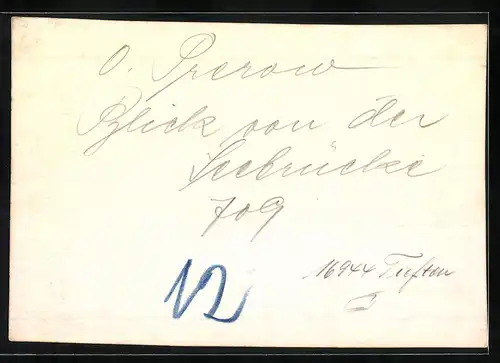 O. Prerow
Blick von der
Seebrücke
709
12
16944 Tiefton